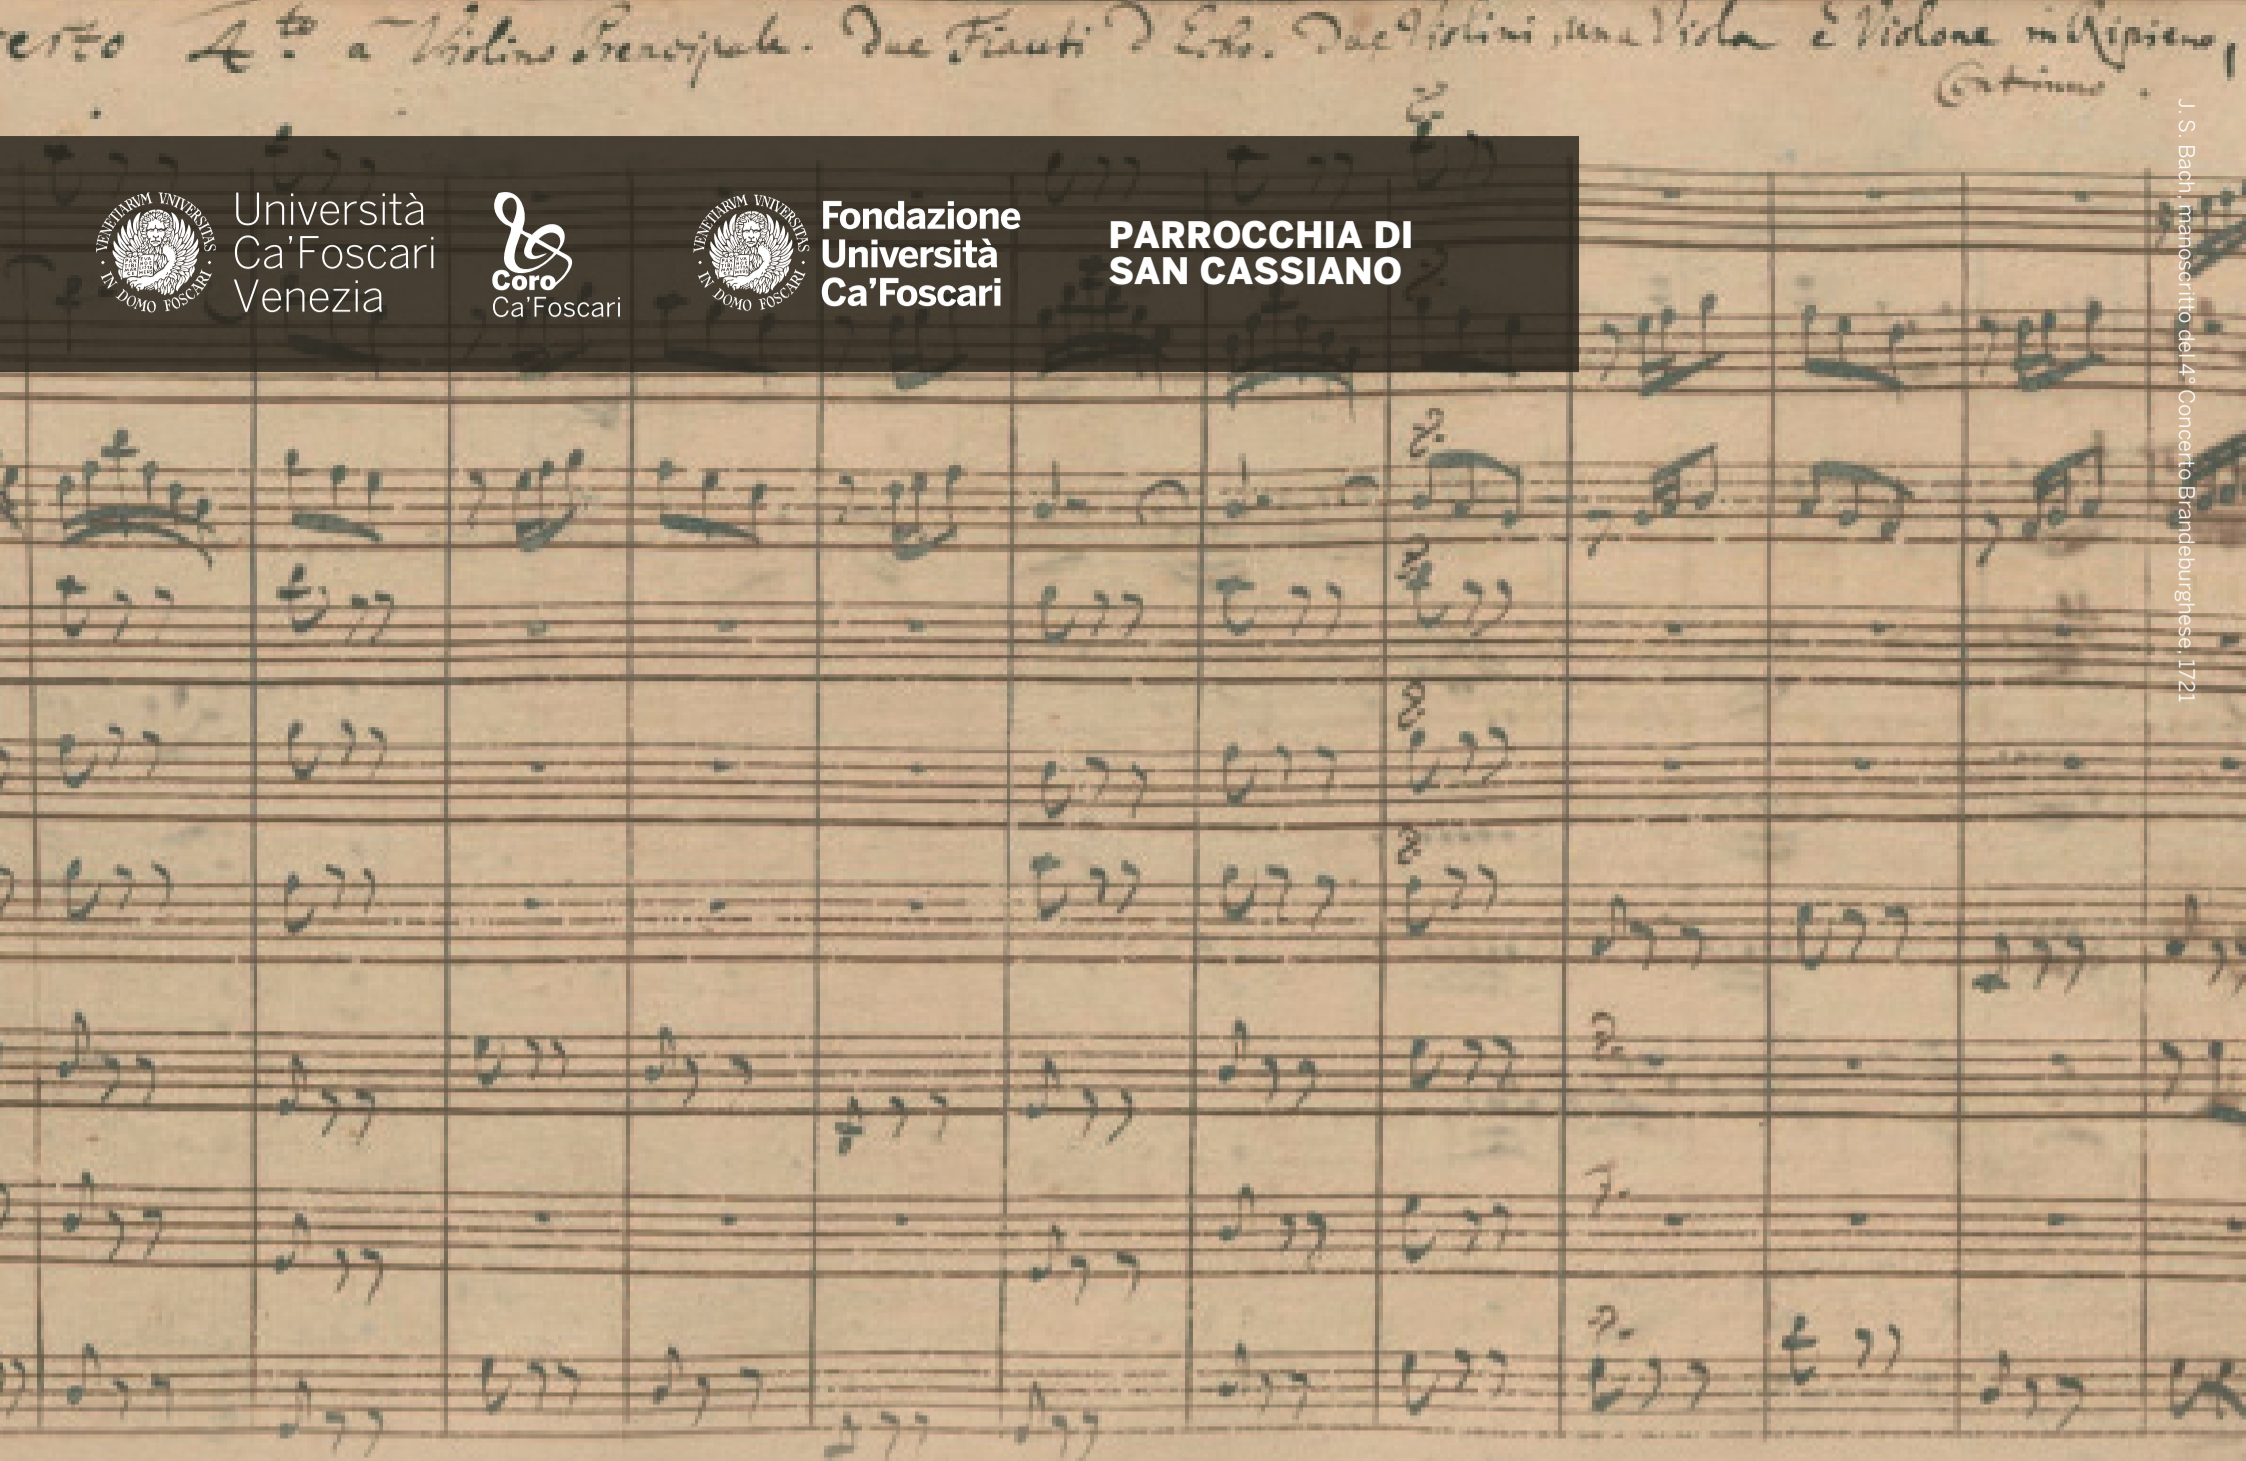 erto 4.to a Violino Principale. due Fiauti d'Echo. due Violini, una Viola è Violone in Ripieno,
Continuo.
VENETIARVM VNIVERSITAS
IN DOMO FOSCARI
Università
Ca'Foscari
Venezia
Coro
Ca'Foscari
VENETIARVM VNIVERSITAS
IN DOMO FOSCARI
Fondazione
Università
Ca'Foscari
PARROCCHIA DI
SAN CASSIANO
J. S. Bach, manoscritto del 4° Concerto Brandeburghese, 1721